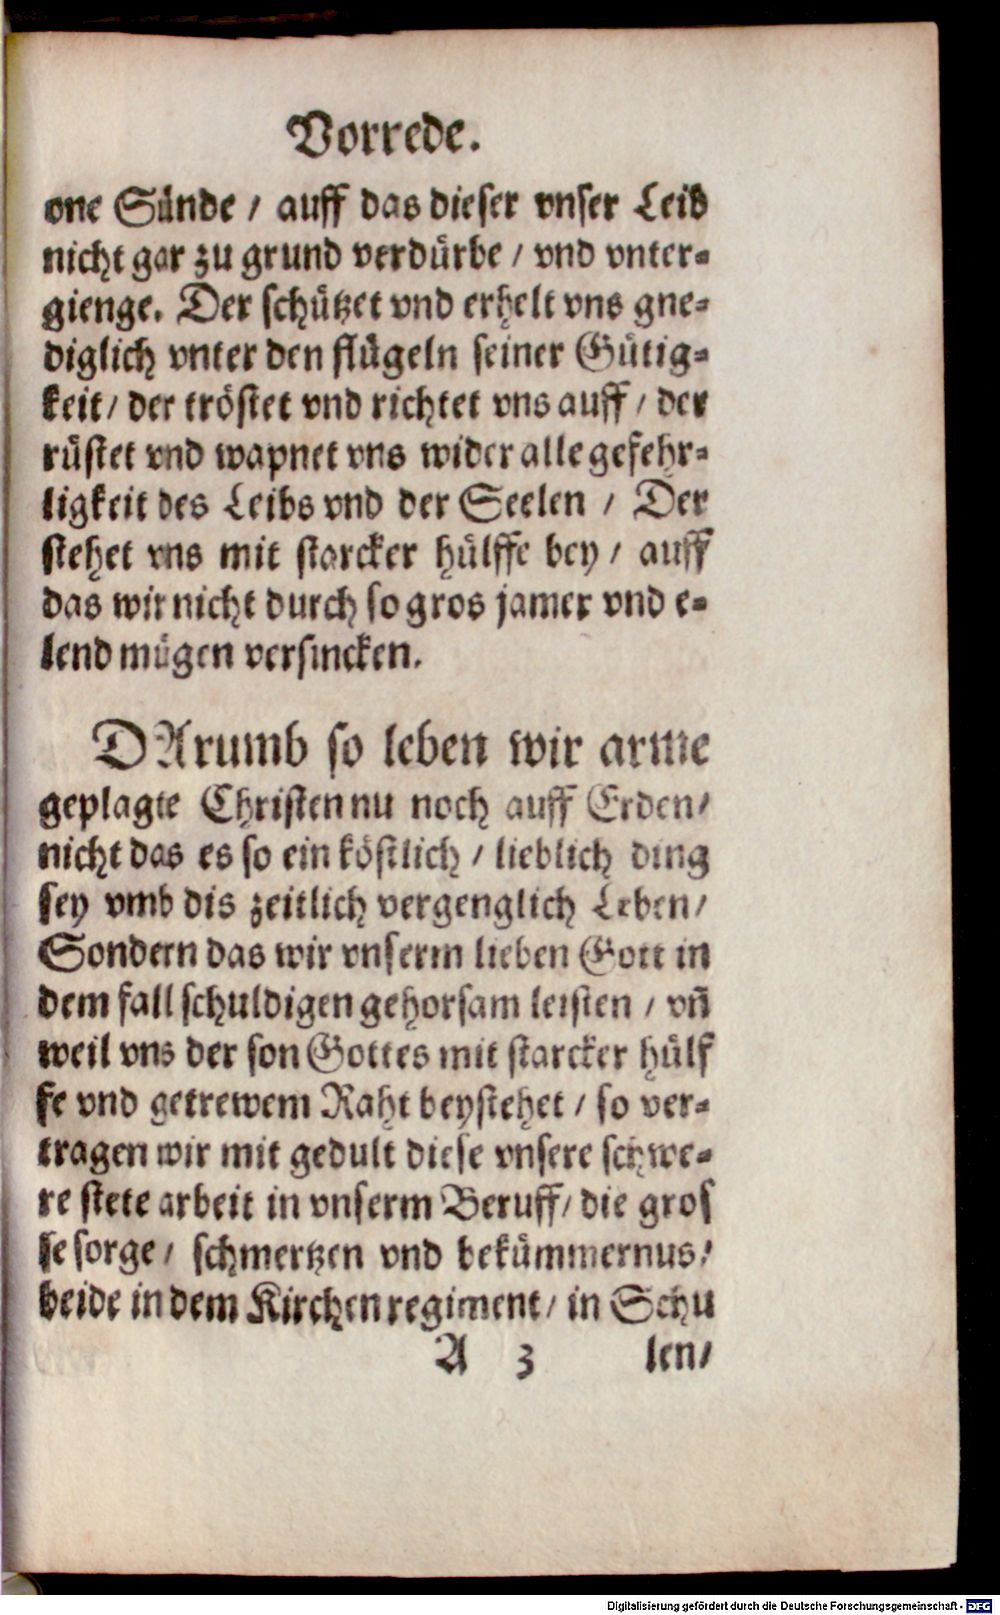 Vorrede.
one Sünde / auff das dieser vnser Leib
nicht gar zu grund verdürbe / vnd vnter-
gienge. Der schützet vnd erhelt vns gne-
diglich vnter den flügeln seiner Gütig-
keit / der tröstet vnd richtet vns auff / der
rüstet vnd wapnet vns wider alle gefehr-
ligkeit des Leibs vnd der Seelen / Der
stehet vns mit starcker hülffe bey / auff
das wir nicht durch so gros jamer vnd e-
lend mügen versincken.
DArumb so leben wir arme
geplagte Christen nu noch auff Erden /
nicht das es so ein köstlich / lieblich ding
sey vmb dis zeitlich vergenglich Leben /
Sondern das wir vnserm lieben Gott in
dem fall schuldigen gehorsam leisten / vn̄
weil vns der son Gottes mit starcker hülf
fe vnd getrewem Raht beystehet / so ver-
tragen wir mit gedult diese vnsere schwe-
re stete arbeit in vnserm Beruff / die gros
se sorge / schmertzen vnd bekümmernus /
beide in dem Kirchenregiment / in Schu
A 3 len /
Digitalisierung gefördert durch die Deutsche Forschungsgemeinschaft - DFG